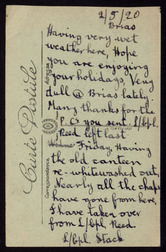 2/5/20
Brias
Having very wet
weather here, Hope
you are enjoying
your holidays. Very
dull @ Brias lately.
Many thanks for the
P.C's you sent. L/Cpl
Reed left last
Friday, Having
the old canteen
re-whitewashed out,
Nearly all the chaps
have gone from here,
I have taken over
from L/Cpl Reed.
L/Cpl Stack
Carte Postale